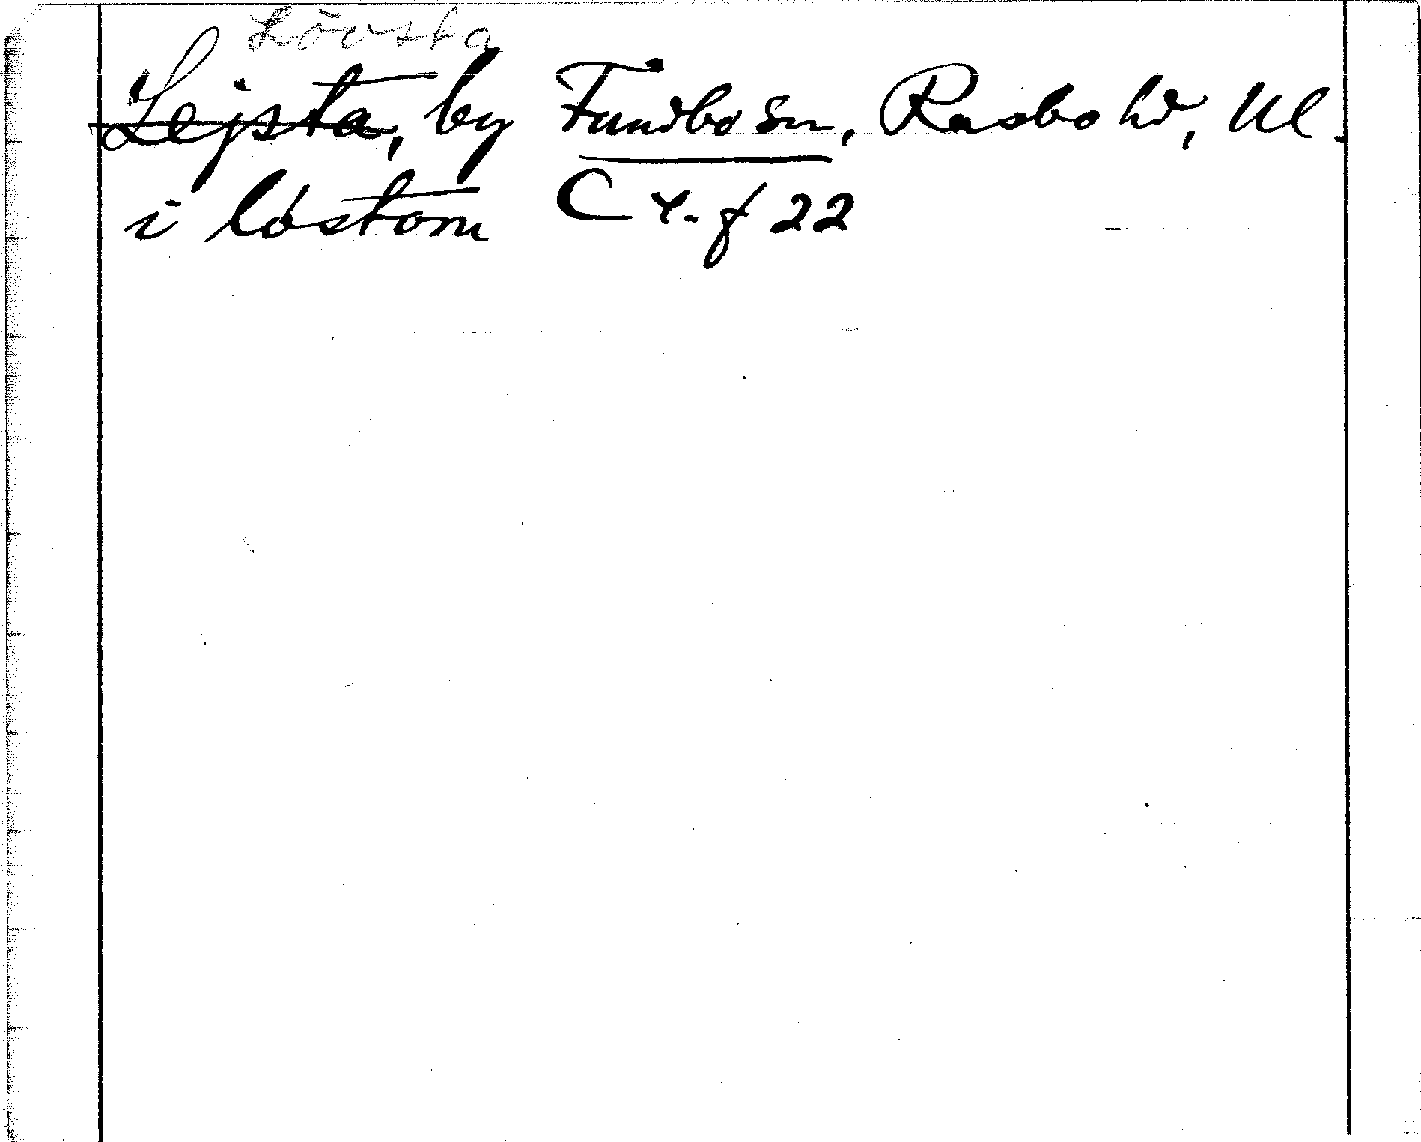 Lövsta
Lejsta, by Funbo sn, Rasbo hd, Ul.
i lóstom C 4. f 22